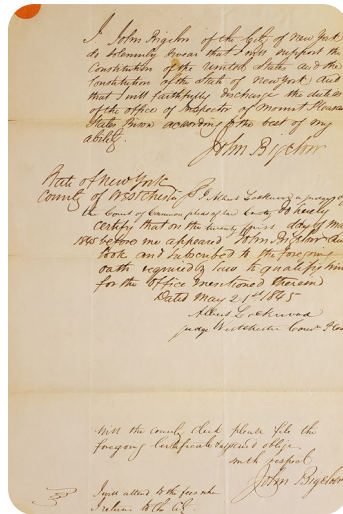 I John Bigelow of the City of New York
do solemnly swear that I will support the
Constitution of the United States and the
Constitution of the State of New York and
that I will faithfully discharge the duties
of the office of Inspector of Mount Pleasant
States Prison according to the best of my
ability.
John Bigelow
State of New York
County of Westchester I Albert Lockwood a judge of
the Court of Common pleas of said County do hereby
certify that on the twenty first day of May
1845 before me appeared John Bigelow and
took and subscribed to the foregoing
oath required by law to qualify him
for the office mentioned therein
Dated May 21st 1845
Albert Lockwood
judge Westchester Com. Pleas
Will the county clerk please file the
foregoing certificate and oblige
with respect
John Bigelow
I will attend to the fees when
I return to the